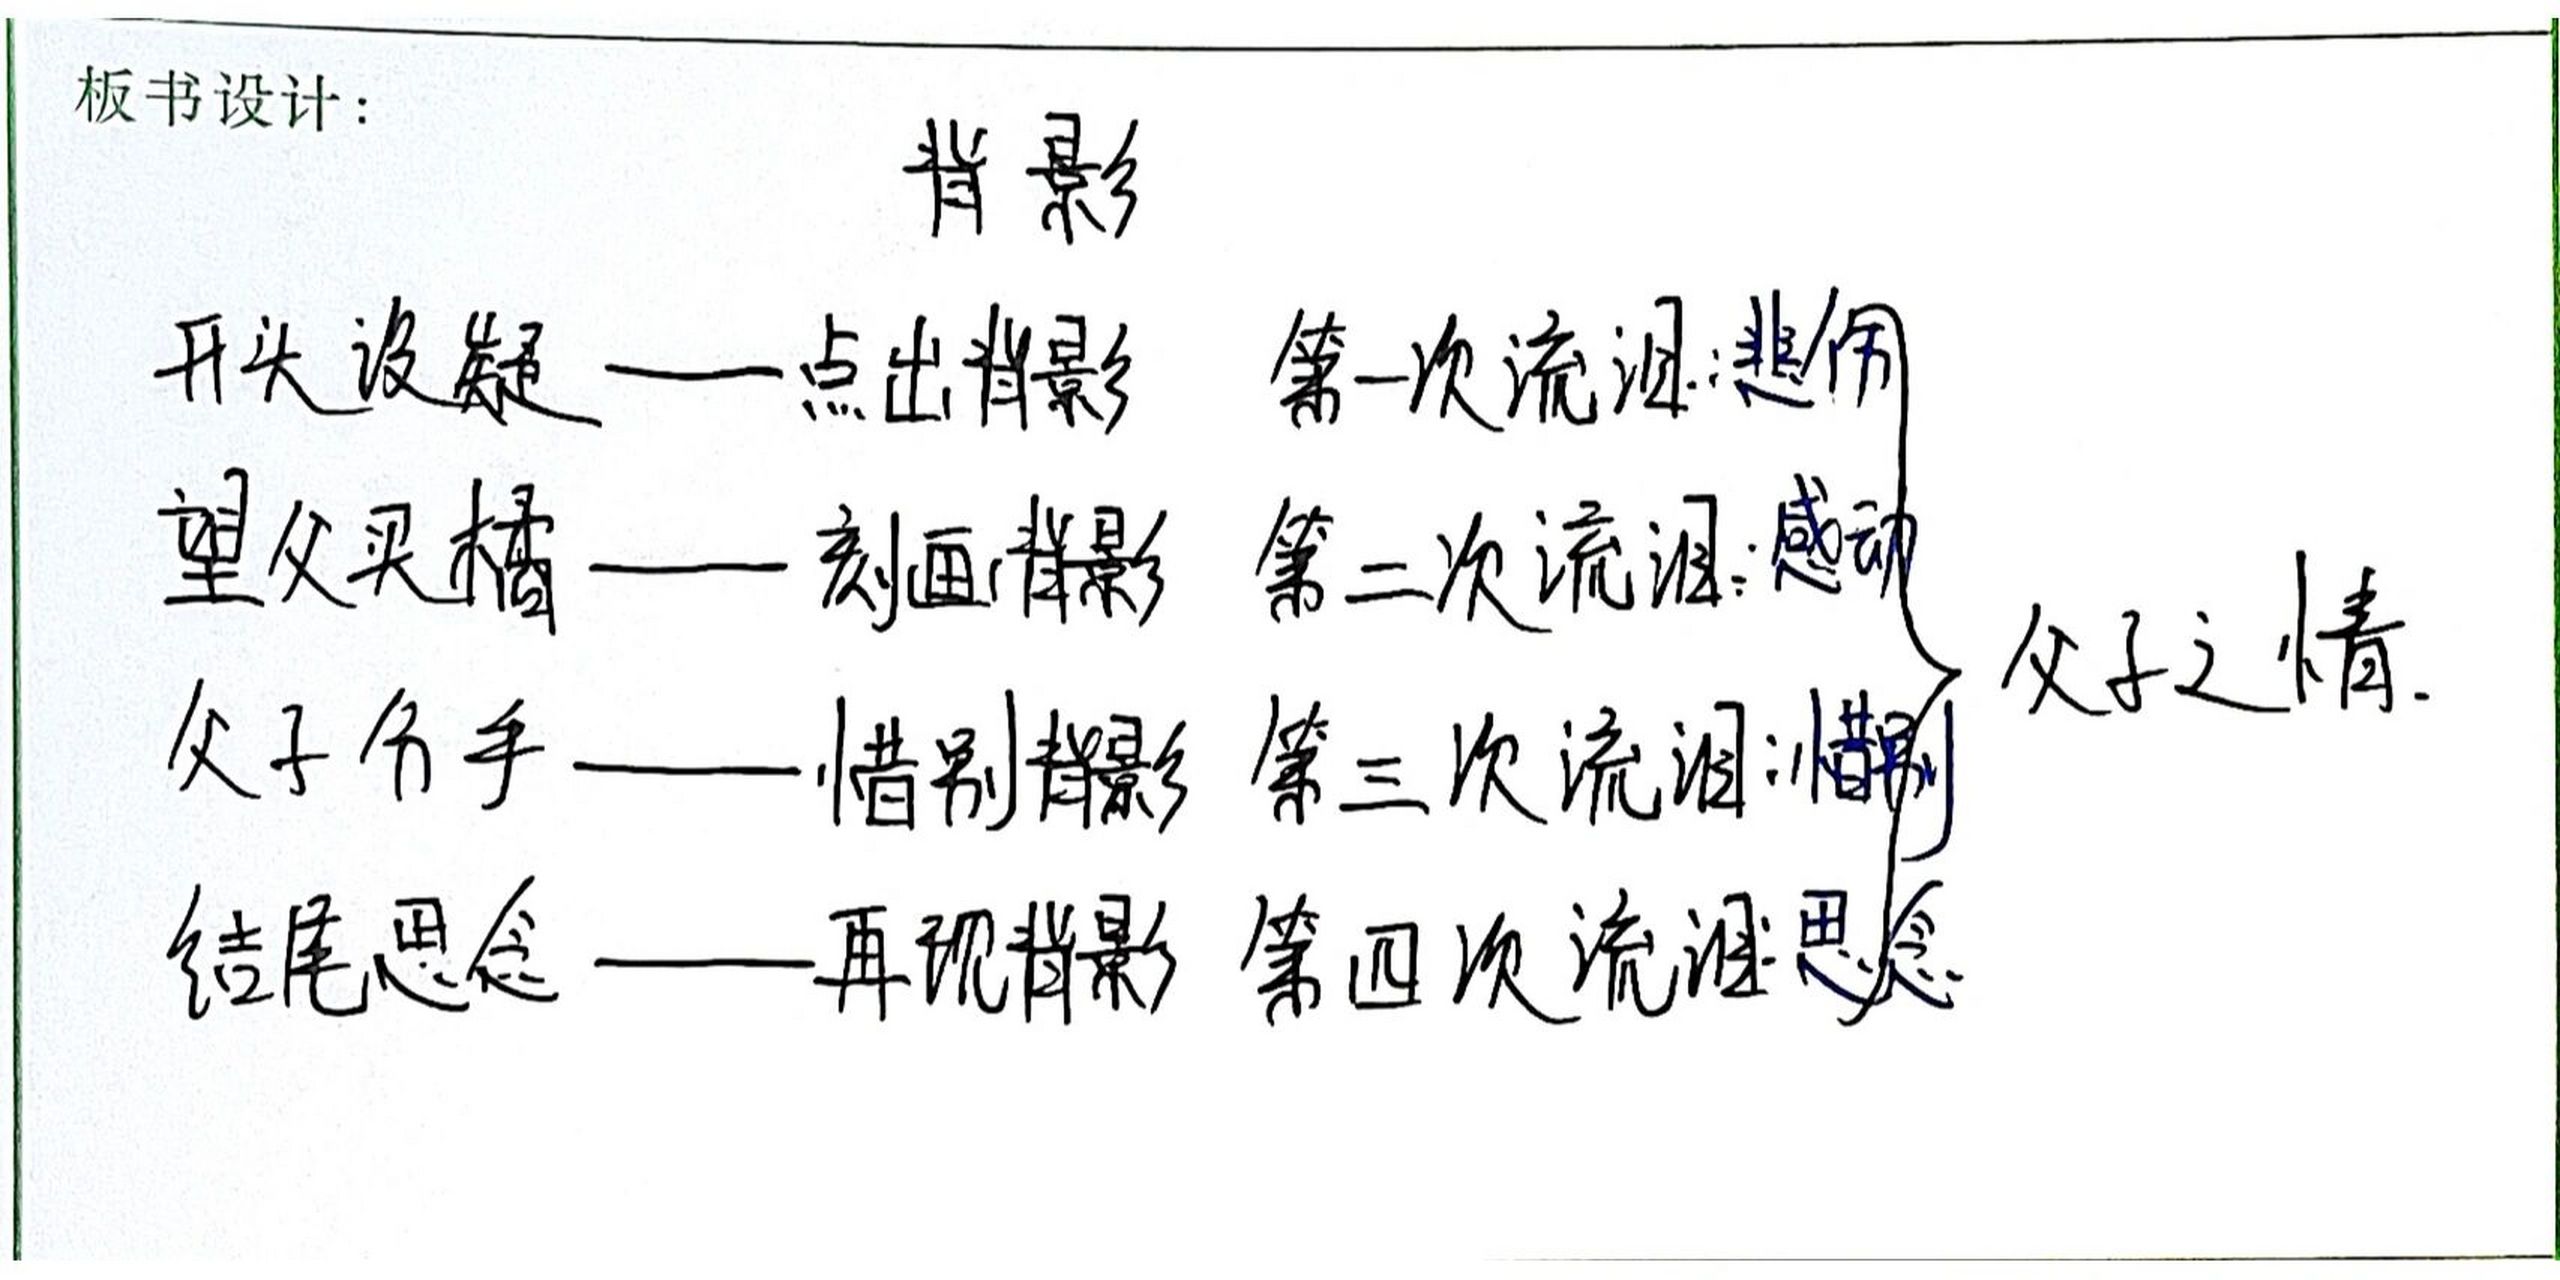 板书设计：
背影
开头设疑——点出背影 第一次流泪:悲伤
望父买橘——刻画背影 第二次流泪:感动
父子分手——惜别背影 第三次流泪:惜别
结尾思念——再现背影 第四次流泪:思念
父子之情.